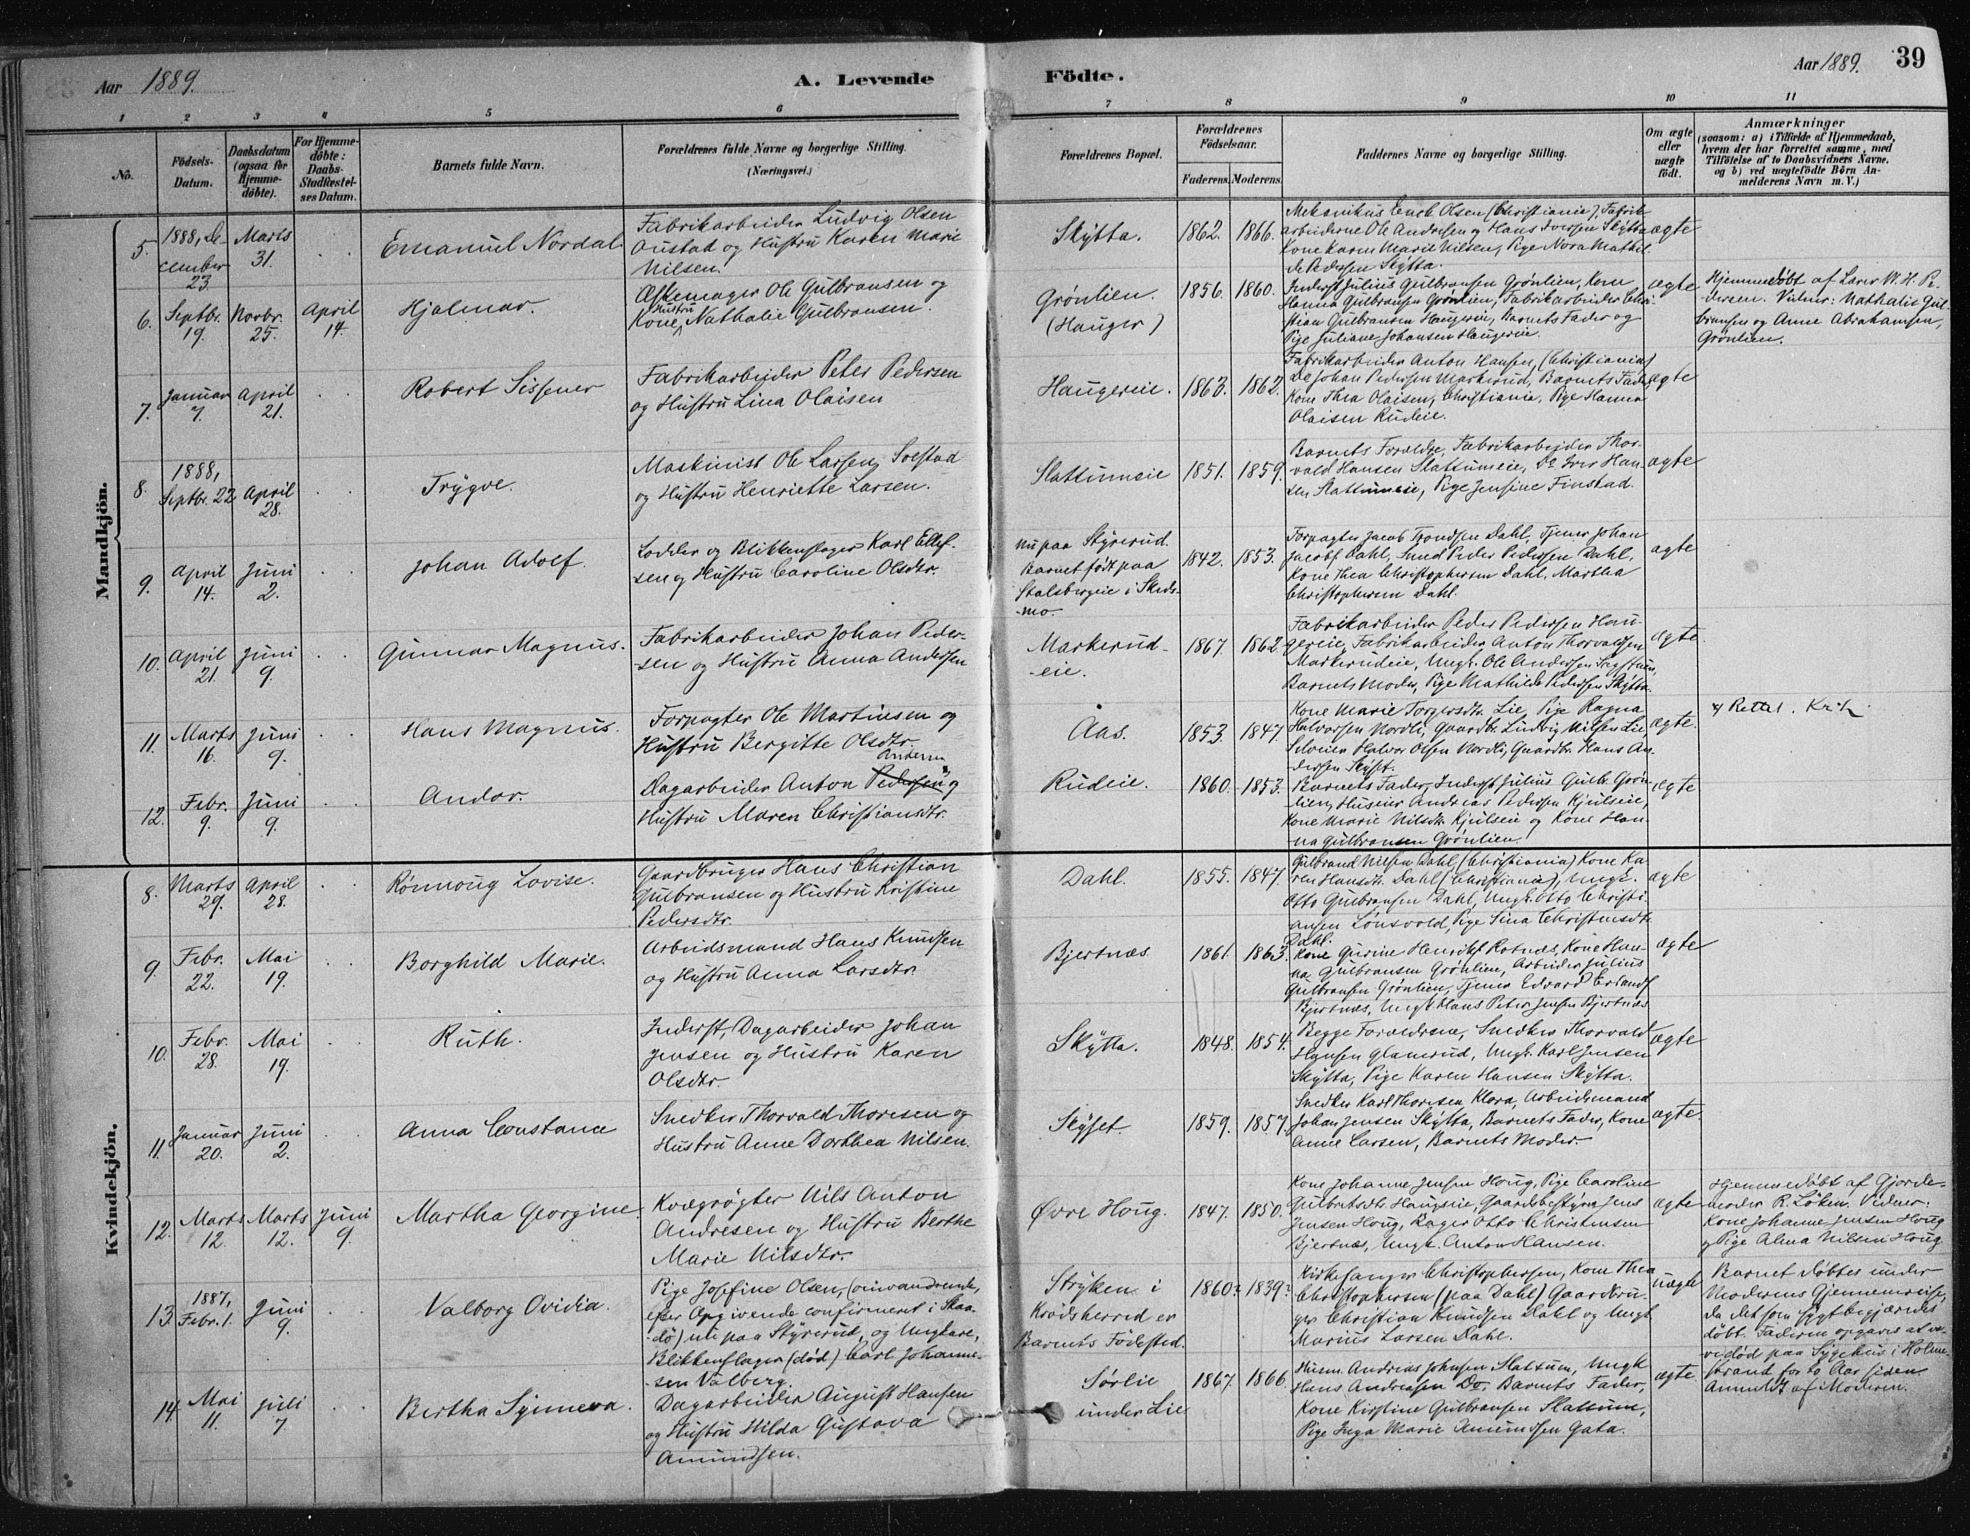 Aar 1889.
A. Levende
Födte.
Aar 1889.
39
1 2 3 4 5 6 7 8 9 10 11
No.
Födsels-
Datum.
Daabsdatum
(ogsaa for
Hjemme-
döbte).
For Hjemme-
döbte:
Daabs-
Stadfæstel-
ses Datum.
Barnets fulde Navn.
Forældrenes fulde Navne og borgerlige Stilling.
(Næringsvei.)
Forældrenes Bopæl.
Forældrenes
Födselsaar.
Faderens. Moderens.
Faddernes Navne og borgerlige Stilling.
Om ægte
eller
uægte
födt.
Anmærkninger
(saasom: a) i Tilfælde af Hjemmedaab,
hvem der har forrettet samme, med
Tilföielse af to Daabsvidners Navne,
og b) ved uægtefödte Börn An-
melderens Navn m. V.)
Mandkjön.
5. 1888, De-
cember
23.
Marts
31.
Emanuel Nordal
Fabrikarbeider Ludvig Olsen
Austad og Hustru Karen Marie
Nilsen.
Skÿtta.
1862. 1866.
Mekanikus Olsen (Christiania), Fabrik-
arbeiderne Ole Andersen og Hans Skÿtta
Kone Karen Marie Nilsen, Pige Nora Mathil-
de Pedersen Skÿtta.
ægte
6. Septbr.
19.
Novbr.
25.
April
14.
Hjalmar.
Æskemager Ole Gulbransen og
Hustru
Kone Nathalie Gulbransen.
Grønlien.
(Hauger)
1856. 1860.
Inderst Julius Gulbransen Grønlien, Kone
Hanna Gulbransen Grønlien, Fabrikarbeider Chri-
stian Gulbransen Haugereie, Barnets Fader og
Pige Juliane Johansen Haugereie.
ægte
Hjemmedøbt af Lærer W. H. Pe-
dersen. Vidner: Nathalie Gul-
bransen og Anne Abrahamsen,
Grønlien.
7. Januar
7.
April
21.
Robert Sissener
Fabrikarbeider Peter Pedersen
og Hustru Lina Olaisen
Haugereie.
1863. 1862.
Fabrikarbeider Anton Hansen, (Christiania)
Do Johan Pedersen Markerud, Barnets Fader,
Kone Thea Olaisen, Christiania, Pige Hanna
Olaisen Rudeie.
ægte
8. 1888,
Septbr. 22
April
28.
Trÿgve.
Maskinist Ole Larsen Solstad
og Hustru Henriette Larsen.
Slattumeie
1851. 1859.
Barnets Forældre, Fabrikarbejder Thor-
vald Hansen Slattumeie, Do Iver Han-
sen Slattumeie, Pige Jensine Finstad.
ægte
9. April
14.
Juni
2.
Johan Adolf.
Lodder og Blikkenslager Karl Ellef-
sen og Hustru Caroline Olsdtr.
nu paa Stÿrerud.
Barnet født paa
Stalsbergeie i Skeds-
mo.
1842. 1853.
Forpagter Jacob Trondsen Dahl, Tjener Johan
Jacobs. Dahl, Smed Peder Pedersen Dahl,
Kone Thea Christophersen Dahl, Martha
Christophersen Dahl.
ægte
10. April
21.
Juni
9.
Gunnar Magnus.
Fabrikarbeider Johan Peder-
sen og Hustru Anna Andersen
Markerud-
eie.
1867. 1862
Fabrikarbeider Peder Pedersen Hau-
gereie, Fabrikarbeider Anton Thorvaldsen
Markerudeie, Ungk. Ole Andersen
Barnets Moder, Pige Mathilde Pedersen Skÿtta.
ægte
11. Marts
16.
Juni
9.
Hans Magnus.
Forpagter Ole Martinsen og
Hustru Bergitte Olsdtr.
Aas.
1853. 1847.
Kone Marie Torgersdtr. Lie, Pige Ragna
Halvorsen Nordli, Gaardbr. Ludvig Nilsen Lie
Selveier Halvor Olsen Nordli, Gaardbr. Hans An-
dersen Skÿset.
ægte.
12. Febr.
9.
Juni
9.
Andor.
Andersen
Dagarbeider Anton Pedersen og
Hustru Maren Christiansdtr.
Rudeie.
1860. 1853.
Barnets Fader, Inderst Julius Gulbr. Grøn-
lien, Huseier Andreas Pedersen Kjulseie,
Kone Marie Nilsdtr. Kjulseie og Kone Han-
na Gulbransen Grønlien.
ægte
Kvindekjön.
8. Marts
29.
April
28.
Rønnoug Lovise.
Gaardbruger Hans Christian
Gulbransen og Hustru Kristine
Pedersdtr.
Dahl.
1855. 1847.
Gulbrand Nilsen Dahl, (Christiania) Kone Ka-
ren Hansdtr. Dahl (Christiania), Ungk.
Otto Gulbransen Dahl, Ungk. Otto Christi-
ansen Lønsvold, Pige Sina Christensdtr.
Dahl.
ægte
9. Febr.
22.
Mai
19.
Borghild Marie.
Arbeidsmand Hans Knudsen
og Hustru Anna Larsdtr.
Bjertnæs
1861. 1863.
Kone Gurine Henriks. Rotnæs, Kone Han-
na Gulbransen Grønlien, Arbeider Julius
Gulbransen Grønlien, Tjener Edvard Erlands.
Bjertnæs, Ungk. Hans Peter Jensen Bjertnæs
ægte
10. Febr.
28.
Mai
19.
Ruth.
Inderst, Dagarbeider Johan
Jensen og Hustru Karen
Olsdtr.
Skÿtta.
1848. 1854.
Begge Forældrene, Snedker Thorvald
Hansen Glamerud, Ungk. Karl Jensen
Skÿtta, Pige Karen Hansen Skÿtta.
ægte
11. Januar
20.
Juni
2.
Anna Constance
Snedker Thorvald Thoresen og
Hustru Anne Dorthea Nilsen.
Skÿset.
1859. 1857.
Snedker Karl Thoresen Klora, Arbeidsmand
Johan Jensen Skÿtta, Barnets Fader, Kone
Anne Larsen, Barnets Moder.
ægte.
12. Marts
12.
Marts
12.
Juni
9.
Martha Georgine.
Kvægrøgter Nils Anton
Andresen og Hustru Berthe
Marie Nilsdtr.
Øvre Houg.
1847. 1850.
Kone Johanne Jensen Houg, Pige Caroline
Gulbrandsdtr. Haugseie, Gaardsbestyrer Jens
Jensen Houg, Bager Otto Christensen
Bjertnæs, Ungk. Anton Hansen.
ægte
Hjemmedøbt af Gjorde-
moder R. Løken. Vidner:
Kone Johanne Jensen Houg
og Pige Alma Nilsen Houg.
13. 1887,
Febr. 1.
Juni
9.
Valborg Ovidia.
Pige Josefine Olsen, (omvandrende,
efter Opgivende confirmeret i Skaa-
dø) nu paa Stÿrerud, og Ungkarl,
Blikkenslager (død) Carl Johanne-
sen Valberg.
Strÿken i
Krødsherred er
Barnets Fødested.
1860? 1839?
Kirkesanger Christophersen, Kone Thea
Christophersen (paa Dahl) Gaardbru-
ger Christian Knudsen Dahl og Ungk.
Marius Larsen Dahl.
uægte
Barnet døbtes under
Moderens Gjennemreise,
da det som sygt begjærdes
døbt. Faderen opgaves at væ-
re død paa Sygehus i Holme-
strand for to Aar siden.
Anmeldt af Moderen.
14. Mai
11.
Juli
7.
Bertha Synneva.
Dagarbeider August Hansen
og Hustru Hilda Gustava
Amundsen.
Sørlie
under Lie
1867. 1866.
Husm. Andreas Johnsen Slattum, Ungk.
Hans Andreasen Do, Barnets Fader,
Kone Kirstine Gulbransen Slattum,
Pige Inga Marie Amundsen Gata.
ægte